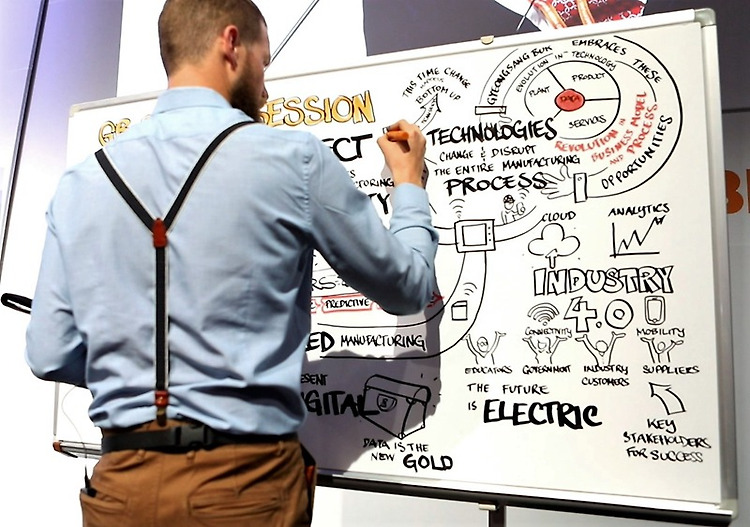 SESSION
THIS TIME CHANGE
BOTTOM UP
ECT
TECHNOLOGIES
CHANGE & DISRUPT
THE ENTIRE MANUFACTURING
PROCESS
GYEONGSANG BUK
EMBRACES THESE
OPPORTUNITIES
EVOLUTION IN TECHNOLOGY
PLANT
PRODUCT
DATA
SERVICES
REVOLUTION IN
BUSINESS MODEL
AND PROCESS
CLOUD
ANALYTICS
INDUSTRY
4.0
CONNECTIVITY
MOBILITY
EDUCATORS
GOVERNMENT
INDUSTRY
CUSTOMERS
SUPPLIERS
THE FUTURE
IS ELECTRIC
KEY
STAKEHOLDERS
FOR SUCCESS
PREDICTIVE
ED MANUFACTURING
ESENT
IGITAL
DATA IS THE
NEW GOLD